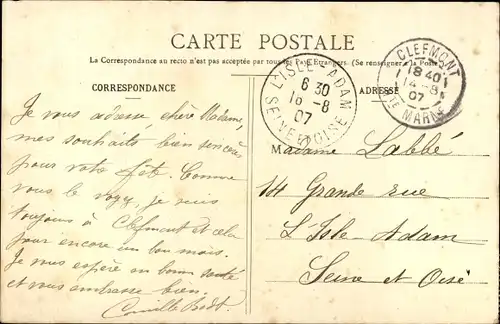 CARTE POSTALE
La Correspondance au recto n'est pas acceptée par tous les Pays Etrangers. (Se renseigner à la Poste)
CORRESPONDANCE
Je vous adresse, chère Madame,
mes souhaits bien sincères
pour votre fête. Comme
vous le voyez, je suis
toujours à Clefmont et cela
pour encore un bon mois.
Je vous espère en bonne santé
et vous embrasse bien.
Camille
L'ISLE-ADAM
6 30
16 -8
07
SEINE ET OISE
CLEFMONT
18 40
14 -8
07
HTE MARNE
ADRESSE
Madame Labbé
14 Grande rue
L'Isle-Adam
Seine et Oise